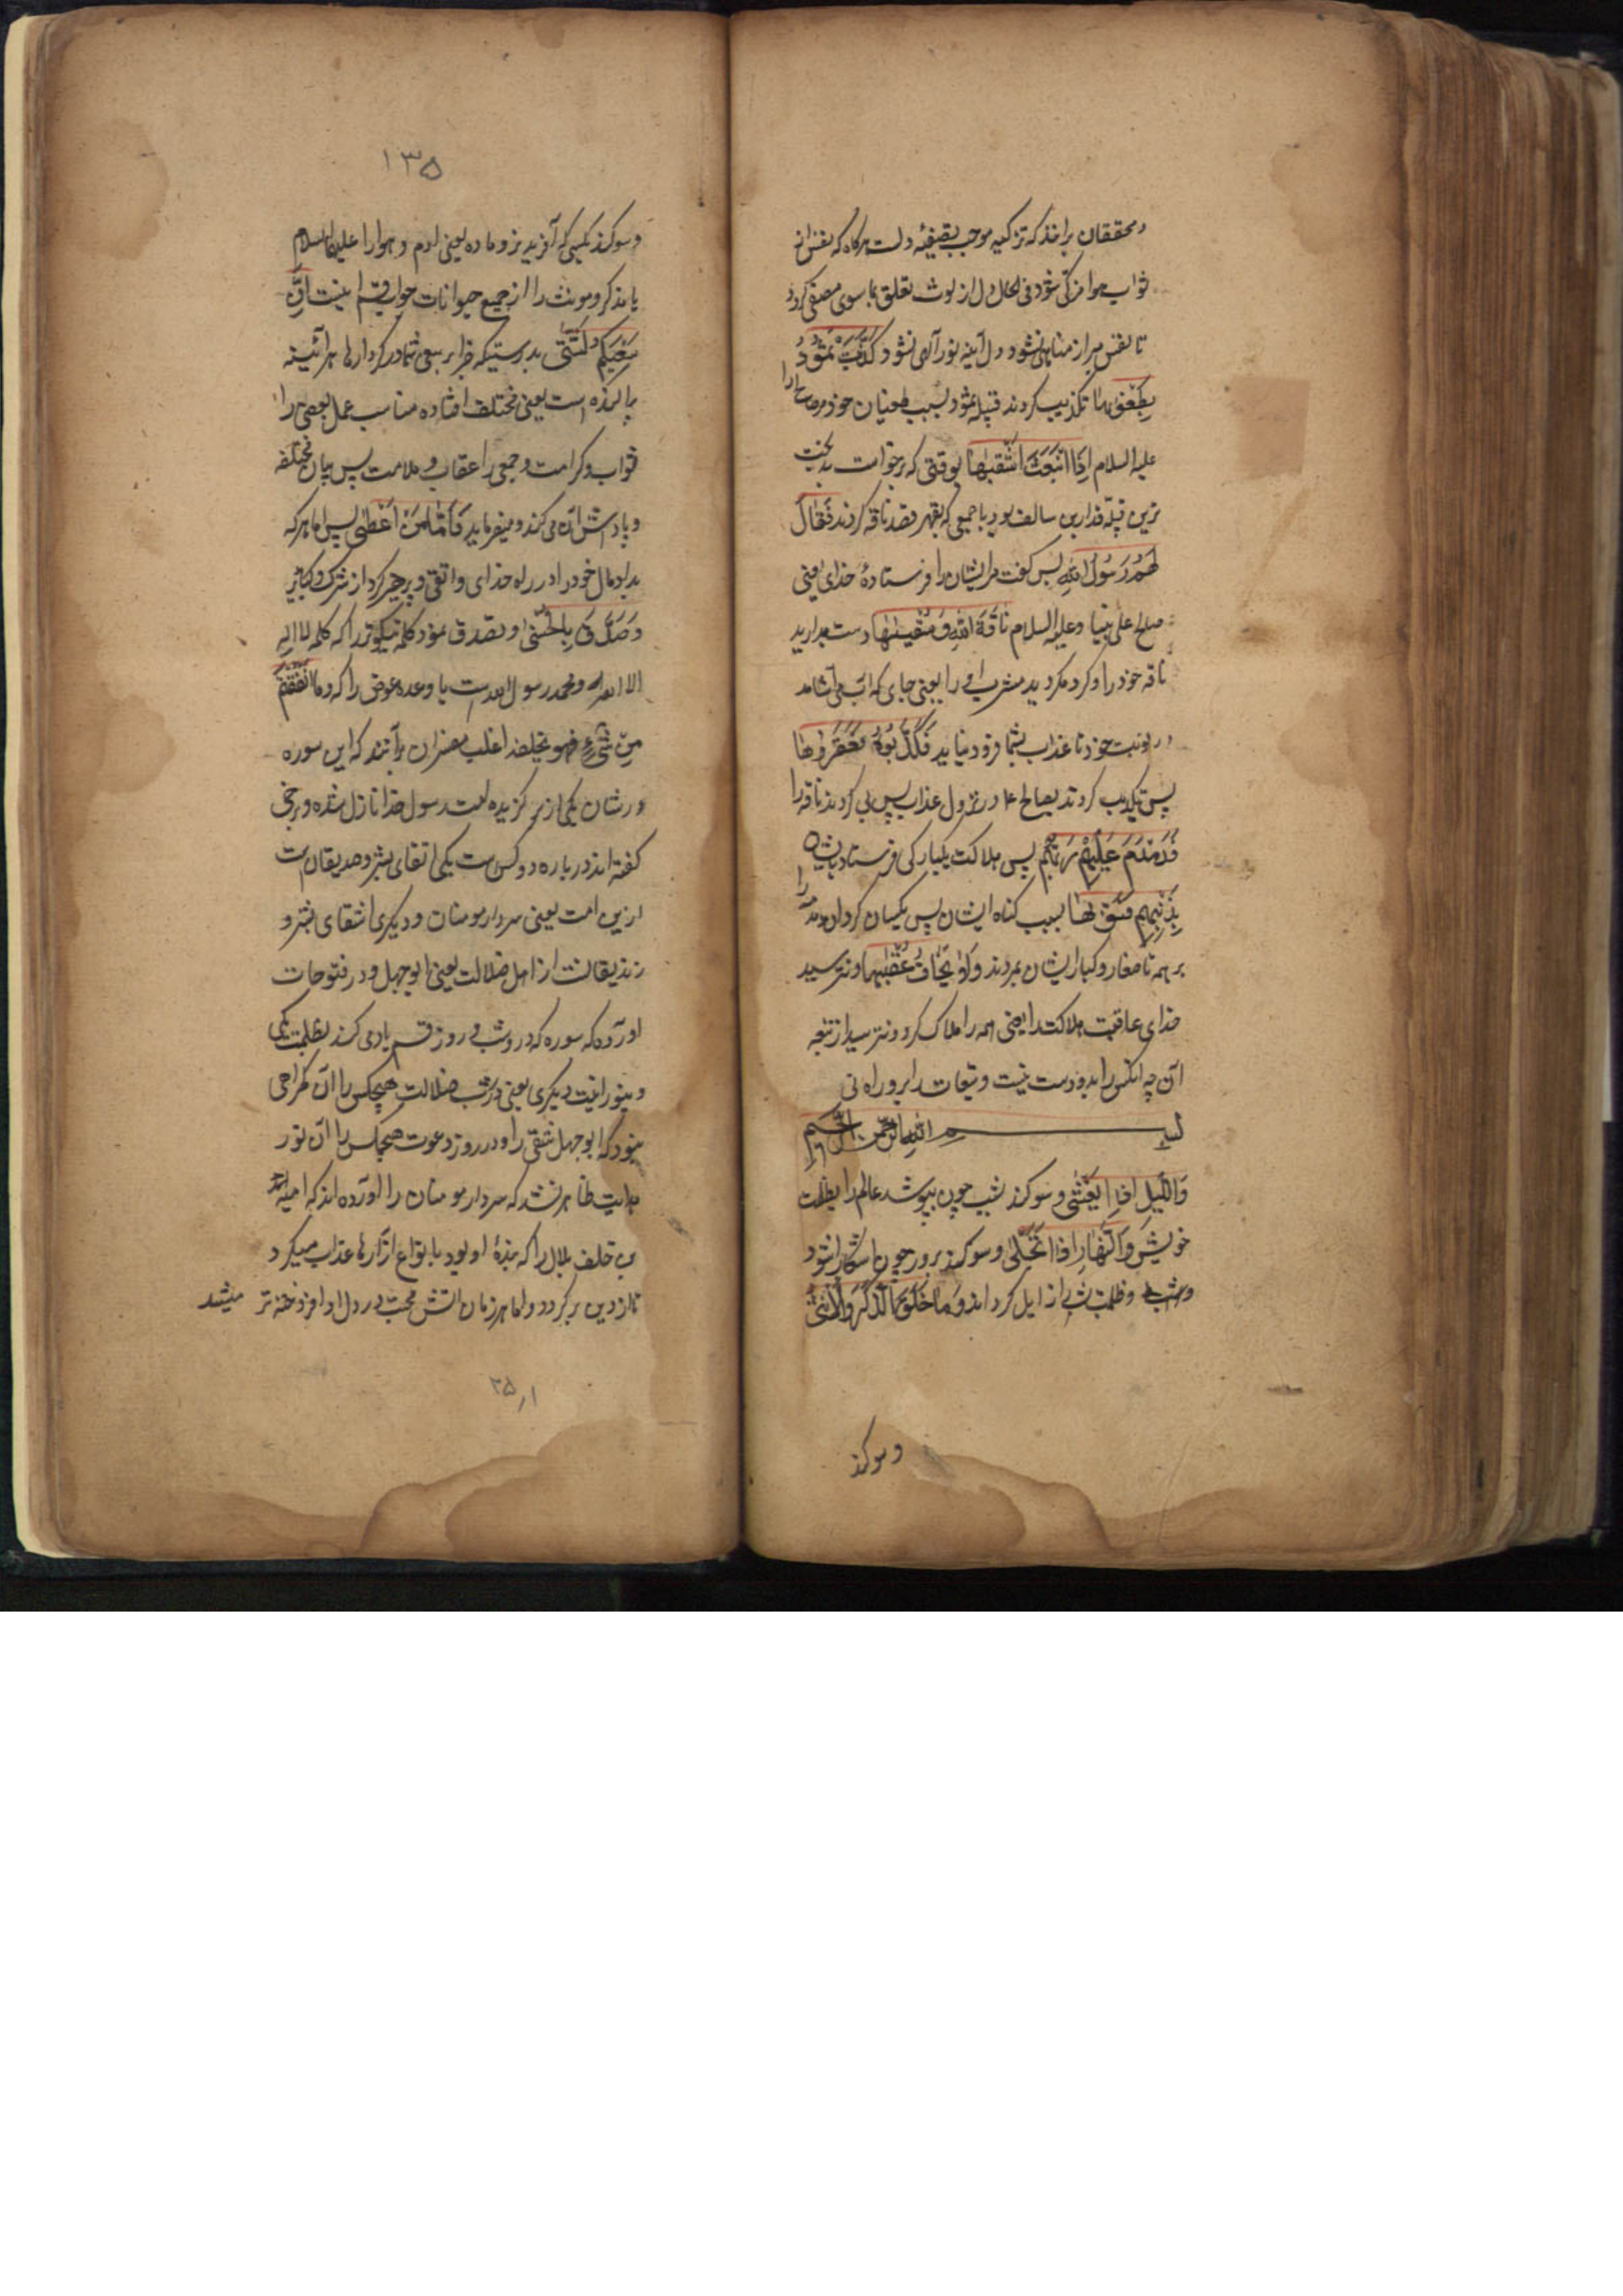 و محققان برانند که تزکیه موجب تصفیهٔ دلست هرگاه که نفس از
شواب هوا مزکی شود فی الحال دل از لوث تعلق بما سوی مصفی گردد
تا نفس مبرا ز مناهی نشود دل آینه نور آلهی نشود کَذَّبَتْ ثَمُوْدُ
بِطَغْوٰىهَا تکذیب کردند قبیله ثمود بسبب طغیان خود مر صالح را
علیه السلام اِذِ انْۢبَعَثَ اَشْقٰىهَا بوقتی که برخواست بدبخت
ترین قبیله قدار بن سالف بود با جمعی که بقهر قصد ناقه کردند فَقَالَ
لَهُمْ رَسُوْلُ اللّٰهِ پس گفت مر ایشان را فرستادهٔ خدای یعنی
صلح علی نبینا و علیه السلام نَاقَةَ اللّٰهِ وَ سُقْیٰهَا دست بدارید
ناقه خود را و گرد مگردید مشرب او را یعنی جای که آب می آشامد
در نوبت خود تا عذاب بشما فرود نیاید فَکَذَّبُوْهُ فَعَقَرُوْهَا
پس تکذیب کردند بصالح ع در نزول عذاب پس پی کردند ناقه را
فَدَمْدَمَ عَلَیْهِمْ رَبُّهُمْ پس هلاکت یکبارگی فرستاد بایشان
بِذَنْۢبِهِمْ فَسَوّٰىهَا بسبب گناه ایشان پس یکسان گردان دمدمه را
بر همه تا صغار و کبار ایشان بمردند وَ لَا یَخَافُ عُقْبٰهَا و نترسید
خدای عاقبت هلاکت را یعنی همه را هلاک کرد و نترسید از تبعه
آن چه انکس را بدو دست نیست و تبعات را برو راه نی
بسم الله الرحمن الرحیم
وَاللَّیْلِ اِذَا یَغْشٰی و سوکند بشب چون بپوشد عالم را بظلمت
خویش وَالنَّهَارِ اِذَا تَجَلّٰی و سوکند بروز چون اشکارا شود
و شب و ظلمت شب را زایل گرداند وَ مَا خَلَقَ الذَّکَرَ وَالْاُنْثٰی
و سوکند
۱۳۵
و سوکند بکسی که آفرید نر و ماده یعنی ادم و هوا را علیهما السلام
یا مذکر و مونث را از جمیع حیوانات جواب قسم اینست اِنَّ
سَعْیَکُمْ لَشَتّٰی بدرستیکه جزا بر سعی شما در کردارها هر آئینه
پراکنده است یعنی مختلف افتاده مناسب عمل بعضی را
ثواب و کرامت و جمعی را عقاب و ملامت پس بیان مختلفه
و پاداش آن می کند و میفرماید فَاَمَّا مَنْ اَعْطٰی پس اما هر که
بداد مال خود را در راه خدای واتقی و پرهیز کرد از شرک و کبایر
وَصَدَّقَ بِالْحُسْنٰی و تصدیق نمود کلمه نیکوتر را که کلمه لا اله
الا الله و محمد رسول الله است یا وعده عوض را که وما انفقتم
من شیء فهو یخلفه اغلب مفسران برآنند که این سوره
در شان یکی از برگزیده امت رسول خدا نازل شده و برخی
گفته اند در باره دو کس است یکی اتقای بشر و صدیقان است
ازین امت یعنی سردار مومنان و دیگری اشقای بشر و
زندیقانست از اهل ضلالت یعنی ابوجهل و در فتوحات
اورده که سوره که در وشب و روز قسم یاد می کند بظلمت یکی
و بنورانیت دیگری یعنی در شب ضلالت هیچکس را آن گمراهی
نبود که ابوجهل شقی را و در روز دعوت هیچکس را آن نور
هدایت ظاهر نشد که سردار مومنان را اورده اند که امیة
بن خلف بلال را که بندهٔ او بود بانواع آزارها عذاب میکرد
تا از دین برگردد و اما هر زمان آتش محبت در دل او افروخته تر میشد
۲۵٫۱